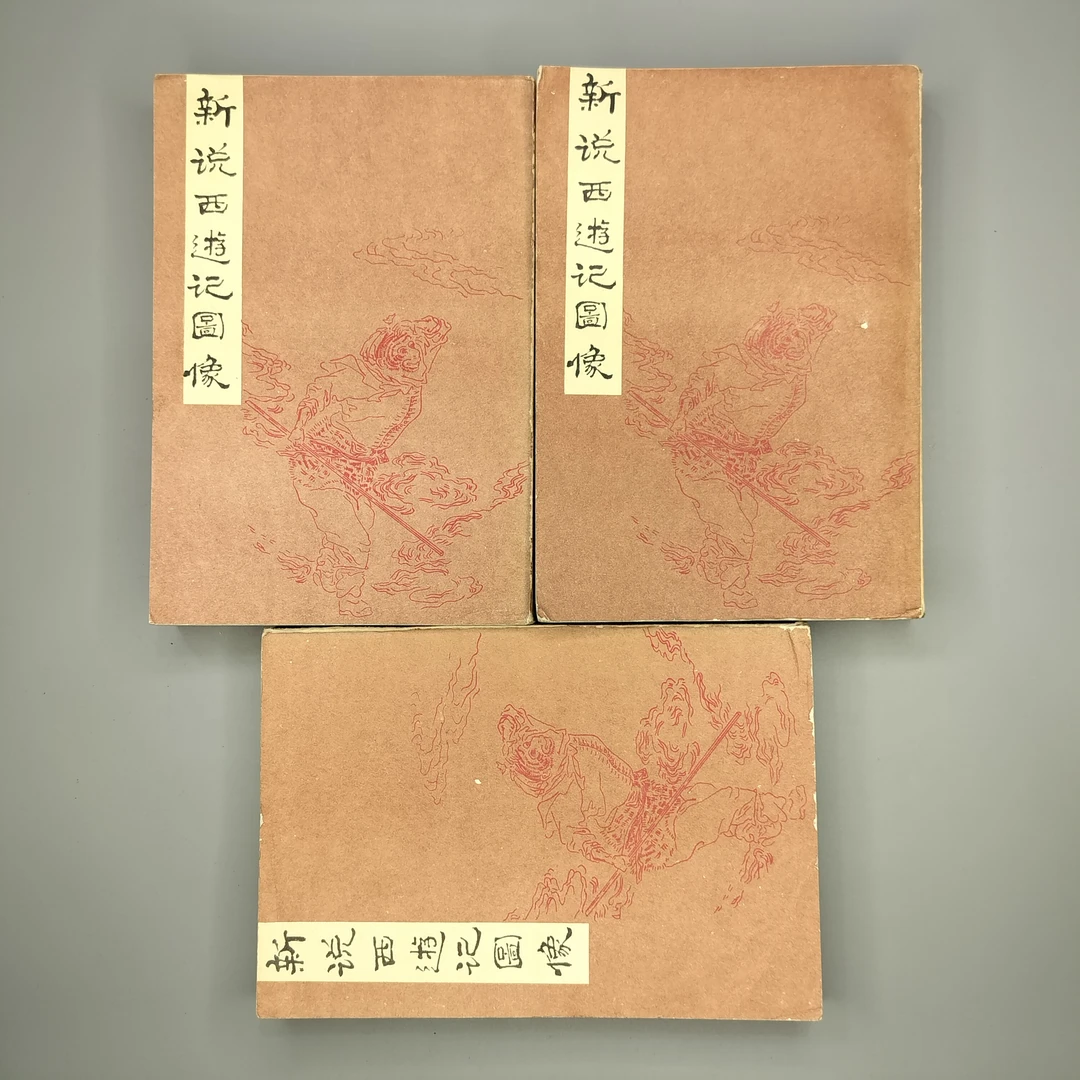 新说西遊记圖像
新说西遊记圖像
新说西遊记圖像